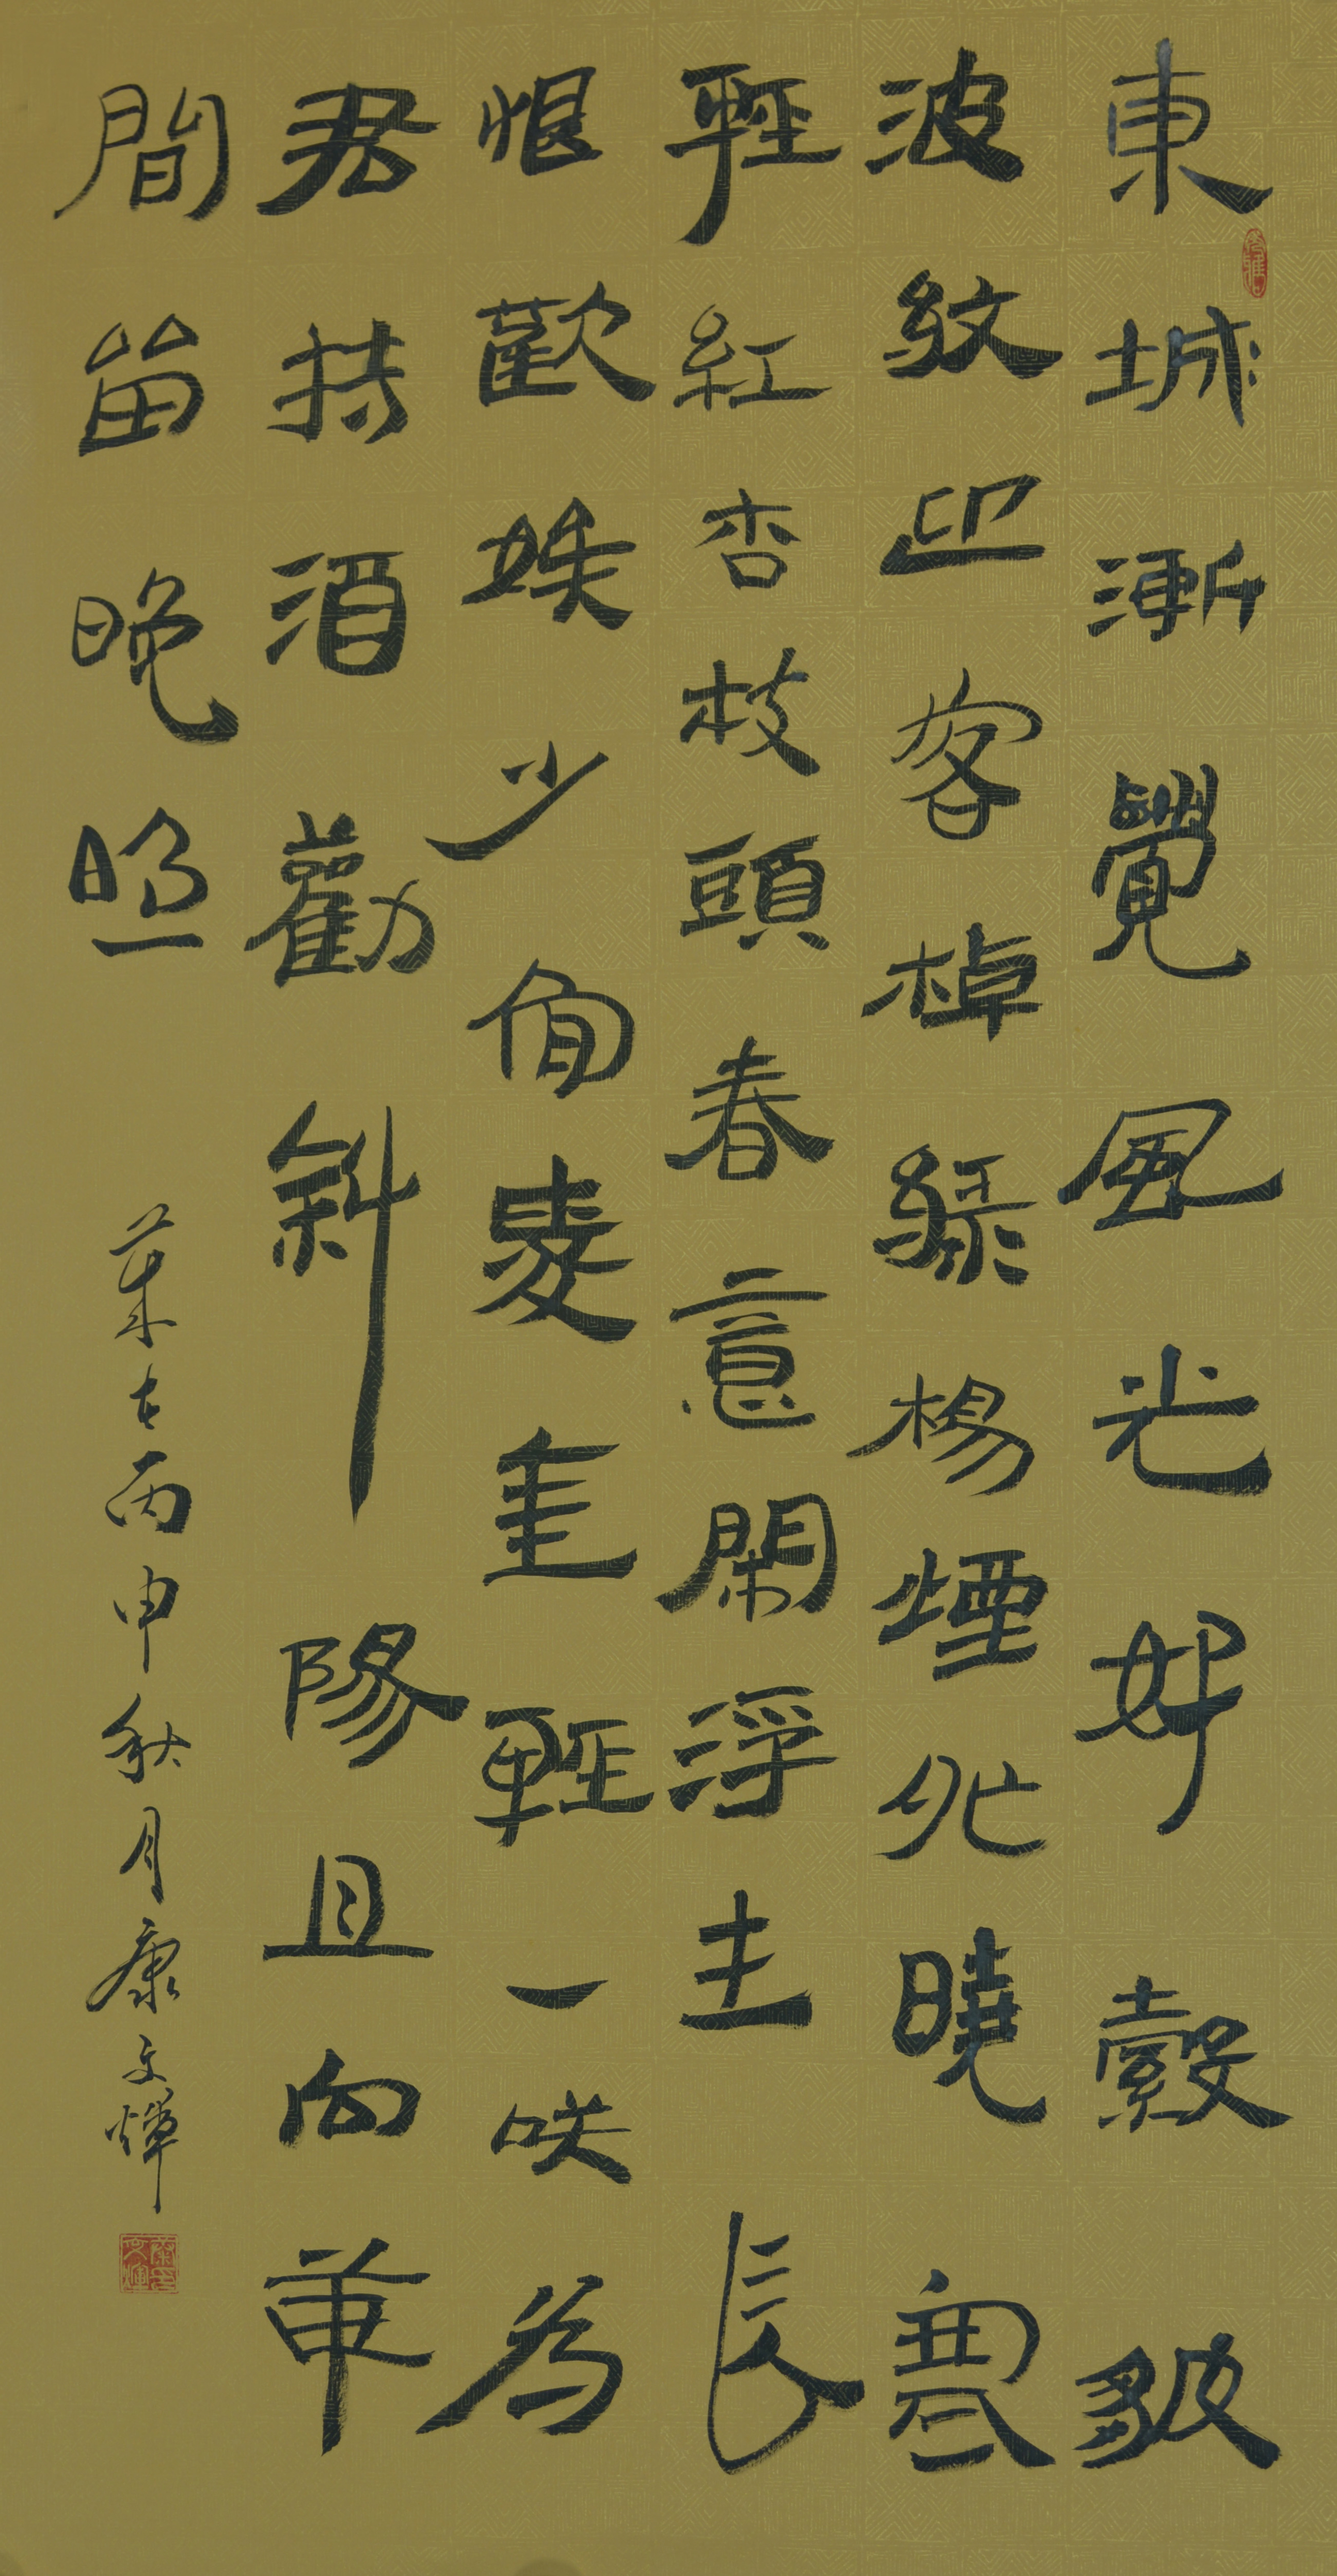 東城漸覺風光好縠皺
波紋迎客棹綠楊煙外曉寒
輕紅杏枝頭春意鬧浮生長
恨歡娛少肯愛輕一咲為
君持酒勸斜陽且向華
間留晚照
歲在丙申秋月康文煇